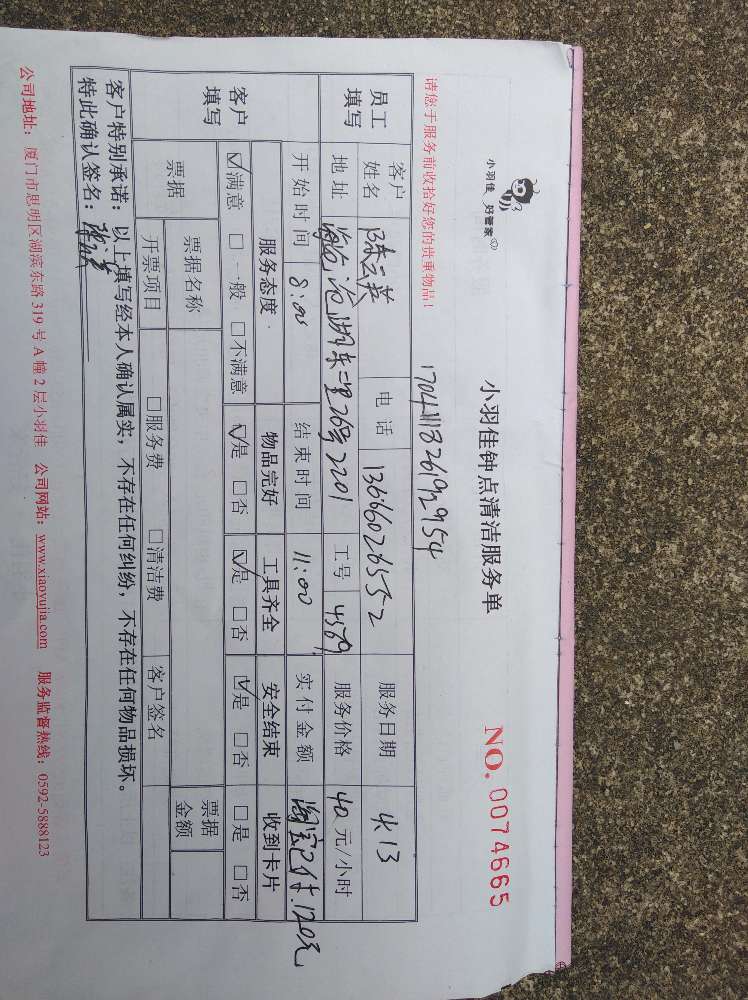 小羽佳 好管家
小羽佳钟点清洁服务单
NO. 0074665
请您于服务前收拾好您的贵重物品!
员工填写
客户姓名 陈云英 电话 13666026552 服务日期 4.13
地址 海沧沧湖东二里26号2201 工号 4589 服务价格 40 元/小时
开始时间 8:00 结束时间 11:00 实付金额 淘宝已付.120元
客户填写
服务态度 物品完好 工具齐全 安全结束 收到卡片
☑满意 □一般 □不满意 ☑是 □否 ☑是 □否 ☑是 □否 □是 □否
票据 票据名称 票据金额
开票项目 □服务费 □清洁费 客户签名
客户特别承诺:以上填写经本人确认属实,不存在任何纠纷,不存在任何物品损坏。
特此确认签名:
公司地址:厦门市思明区湖滨东路 319 号 A 幢 2 层小羽佳 公司网站:www.xiaoyujia.com 服务监督热线:0592-5888123